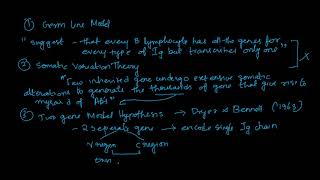 ① Germ line Model
"suggest - that every B lymphocyte has all the genes for
every type of Ig but transcribes only one"
② Somatic Variation Theory
"Two inherited gene undergo extensive somatic
alterations to generate the thousands of gene that give rise to
myraid of "Abs"
③ Two gene Model Hypothesis → Dryer & Bennett (1965)
- 2 seperate gene → encode single Ig chain
V region C region